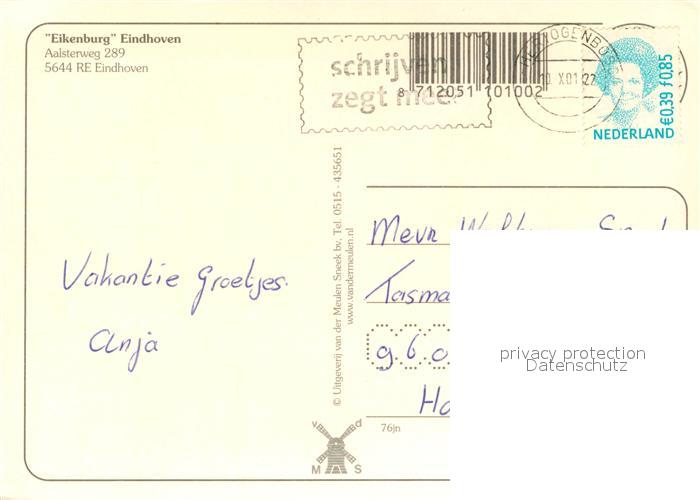 "Eikenburg" Eindhoven
Aalsterweg 289
5644 RE Eindhoven
schrijven
zegt mee
8 712051 101002
HERTOGENBOS
10.X.01 22
€0,39 ƒ0,85
NEDERLAND
© Uitgeverij van der Meulen Sneek bv, Tel. 0515 - 435651
www.vandermeulen.nl
Vakantie Groetjes.
Anja
Mevr
Tasma
9.6.0
Ho
privacy protection
Datenschutz
v d
M S
76jn